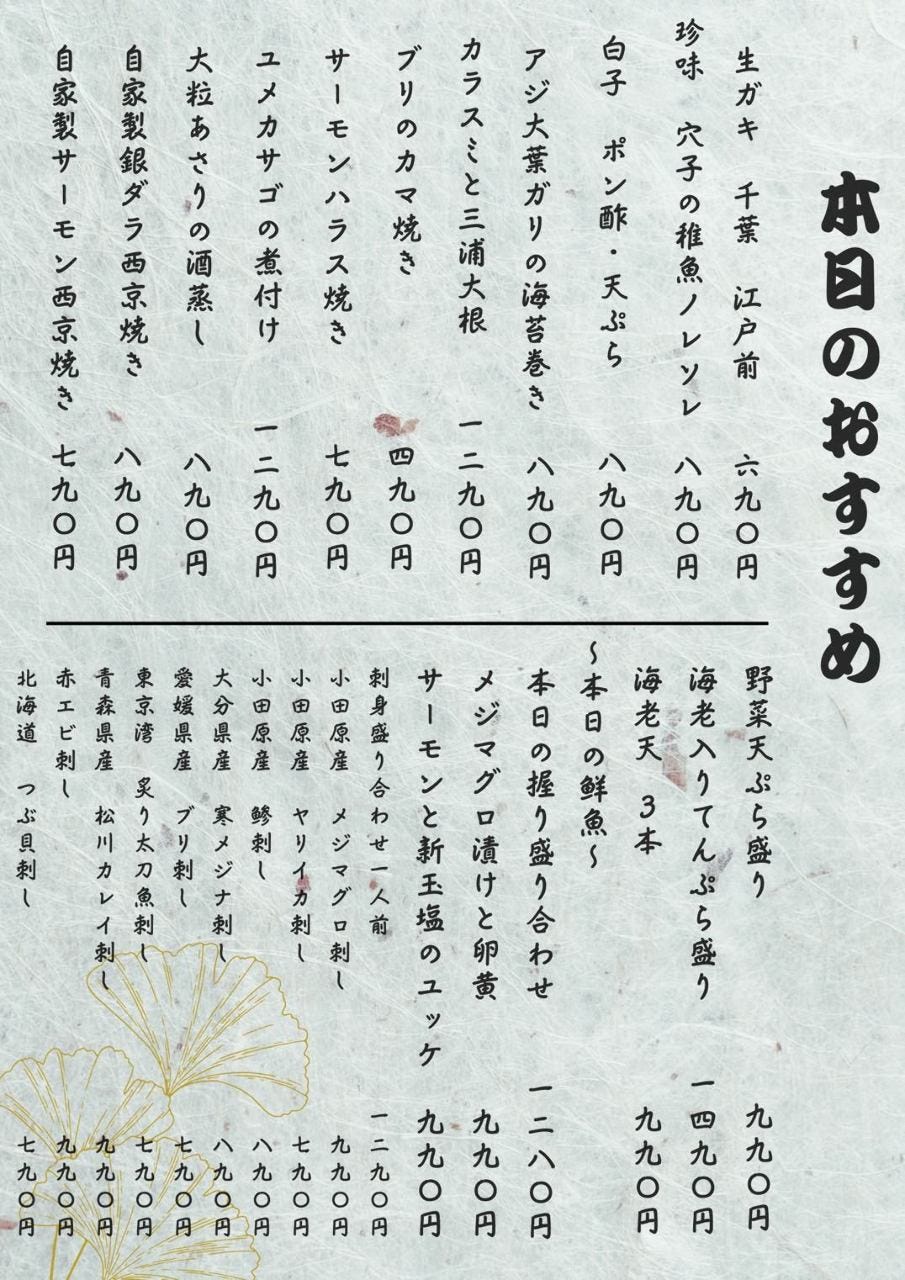 本日のおすすめ
生ガキ 千葉 江戸前 六九〇円
珍味 穴子の稚魚ノレソレ 八九〇円
白子 ポン酢・天ぷら 八九〇円
アジ大葉ガリの海苔巻き 八九〇円
カラスミと三浦大根 一二九〇円
ブリのカマ焼き 四九〇円
サーモンハラス焼き 七九〇円
ユメカサゴの煮付け 一二九〇円
大粒あさりの酒蒸し 八九〇円
自家製銀ダラ西京焼き 八九〇円
自家製サーモン西京焼き 七九〇円
野菜天ぷら盛り 九九〇円
海老入りてんぷら盛り 一四九〇円
海老天 3本 九九〇円
～本日の鮮魚～
本日の握り盛り合わせ 一二八〇円
メジマグロ漬けと卵黄 九九〇円
サーモンと新玉塩のユッケ 九九〇円
刺身盛り合わせ一人前 一二九〇円
小田原産 メジマグロ刺し 九九〇円
小田原産 ヤリイカ刺し 七九〇円
小田原産 鯵刺し 八九〇円
大分県産 寒メジナ刺し 八九〇円
愛媛県産 ブリ刺し 七九〇円
東京湾 炙り太刀魚刺し 七九〇円
青森県産 松川カレイ刺し 九九〇円
赤エビ刺し 九九〇円
北海道 つぶ貝刺し 七九〇円